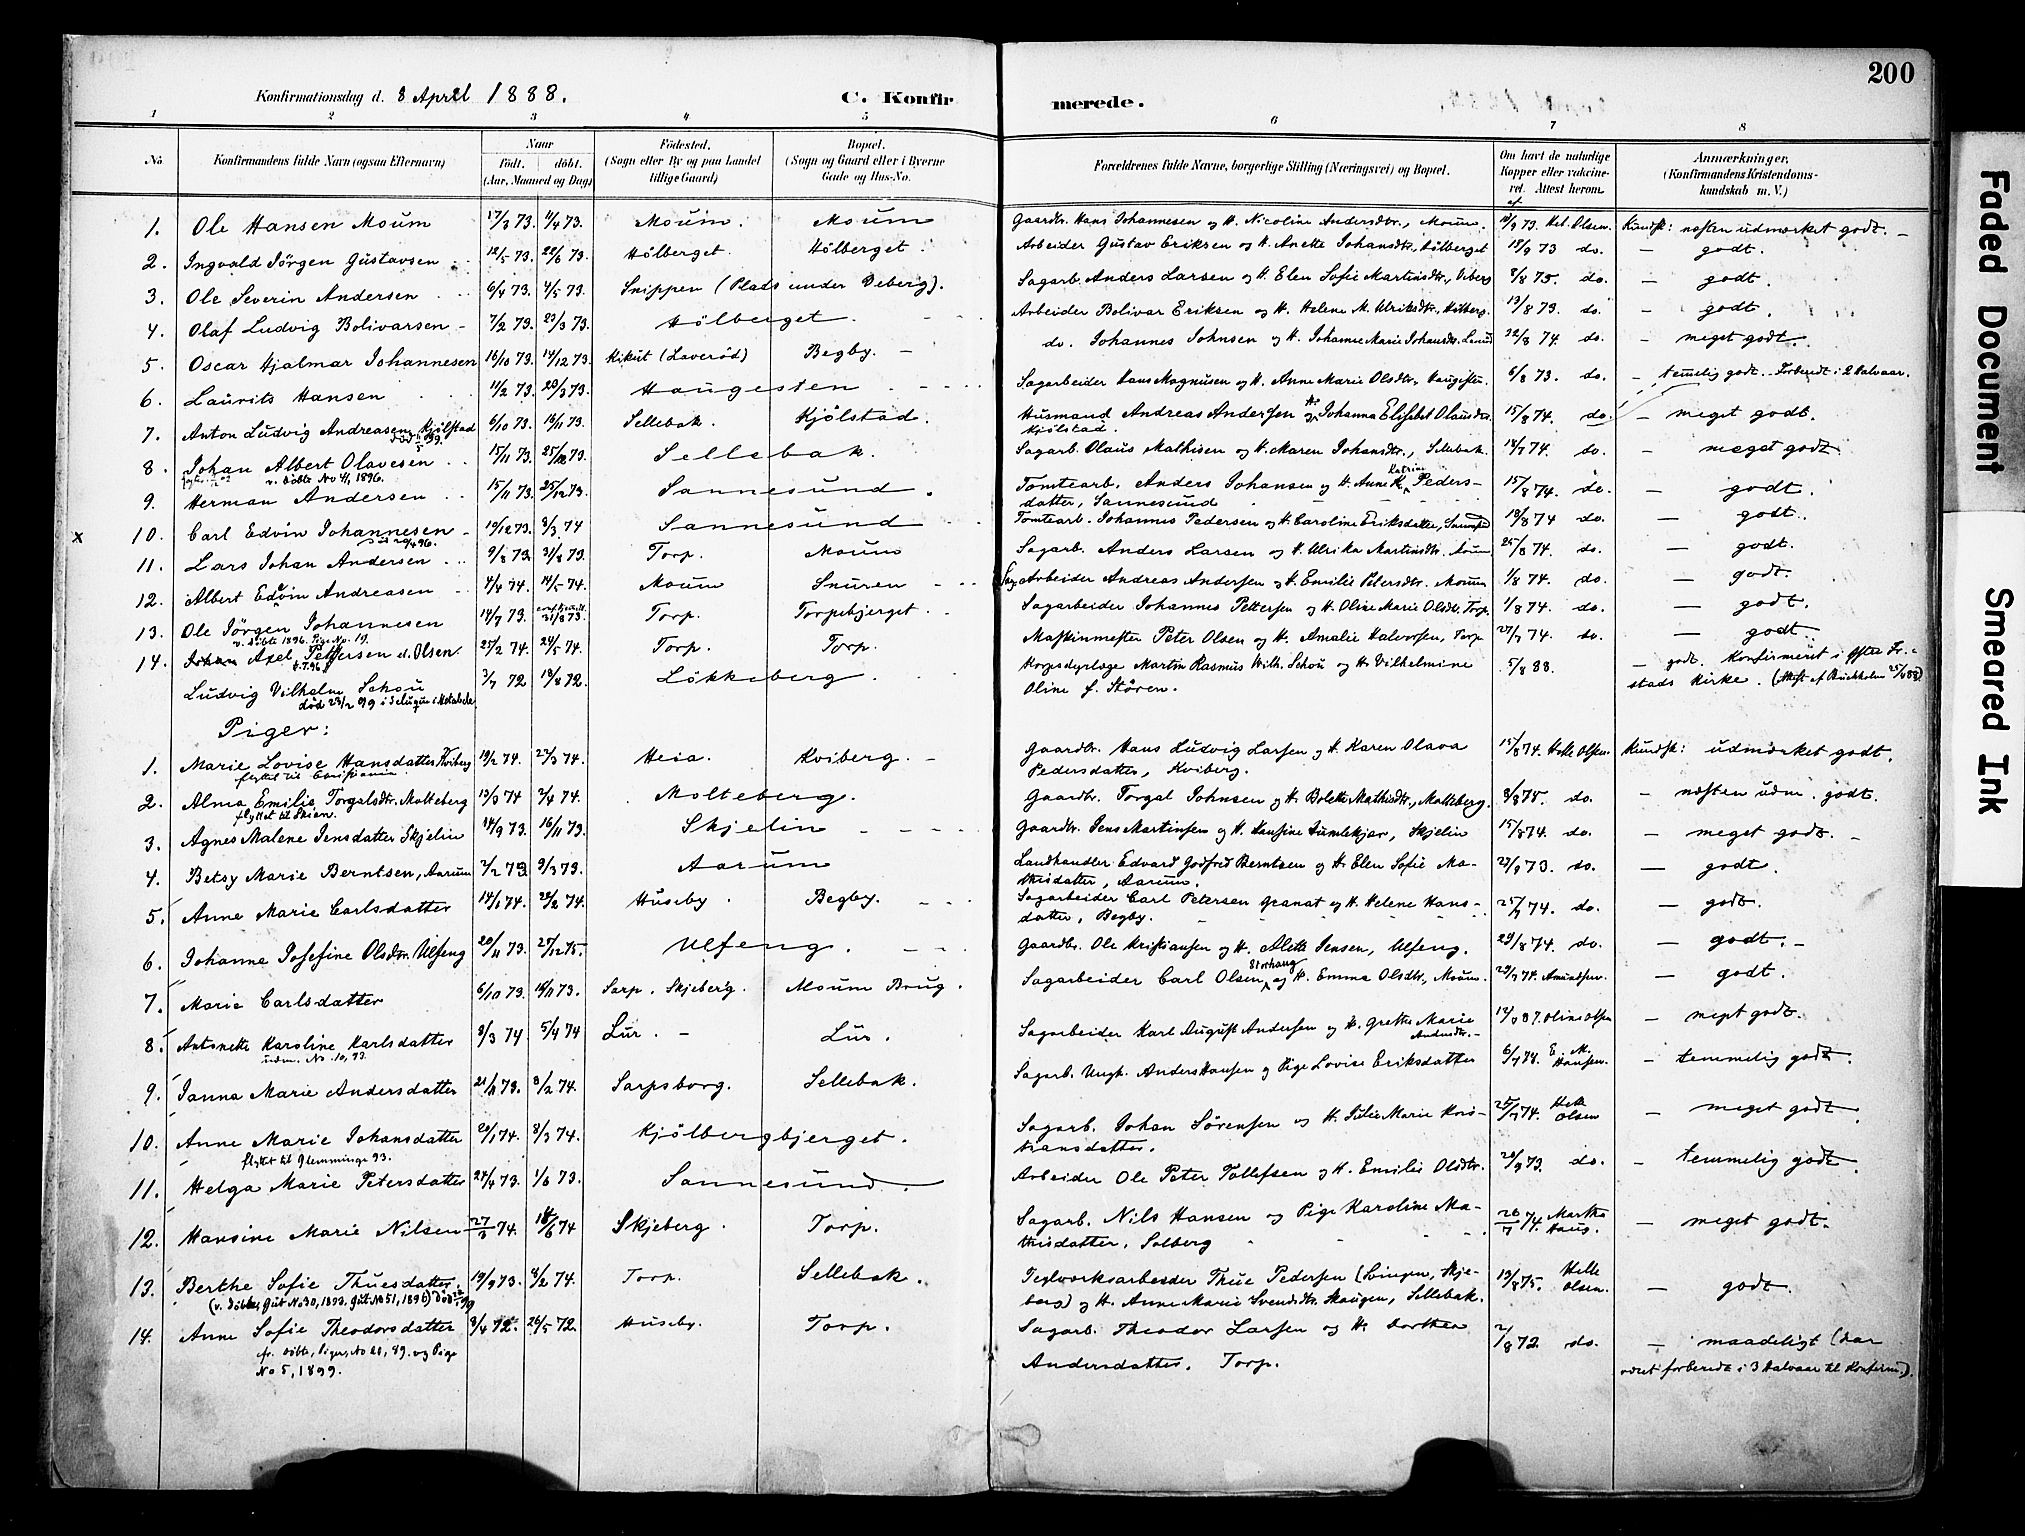 200
Konfirmationsdag d. 8 April 1888. C. Konfirmerede.
1 2 3 4 5 6 7 8
No. Konfirmandens fulde Navn (ogsaa Efternavn) Naar født. døbt. (Aar, Maaned og Dag) Fødested. (Sogn eller By og paa Landet tillige Gaard) Bopæl. (Sogn og Gaard eller i Byerne Gade og Hus-No. Forældrenes fulde Navne, borgerlige Stilling (Næringsvei) og Bopæl. Om havt de naturlige Kopper eller vaccineret. Attest herom. Anmærkninger, (Konfirmandens Kristendomskundskab m. V.)
1. Ole Hansen Moum 17/3 73. 11/4 73. Moum. Moum Gaardbr. Hans Johannesen og H. Nicoline Andersdtr., Moum. 18/9 73. Hel. Olsen. Kundsk: næsten udmærket godt. –
2. Ingvald Jörgen Gustavsen 12/5 73. 22/6 73. Hölberget. Hölberget. Arbeider Gustav Eriksen og H. Anette Johansdtr., Hölberget 18/9 73 do. – godt.
3. Ole Severin Andersen 6/4 73. 4/5 73. Snippen (Plads under Deberg). Sagarb. Anders Larsen og H. Elen Sofie Martinsdtr., Viberg 8/8 75. do. – godt.
4. Olaf Ludvig Bolivarsen – 7/2 73. 23/3 73. Hölberget. Arbeider Bolivar Eriksen og H. Helene M. Ulriksdtr., Hölberg. 13/8 73. do. – godt.
5. Oscar Hjalmar Johannesen 16/10 73. 14/12 73. Kikut (Laveröd) Begby. – do. Johannes Johnsen og H. Johanne Marie Johansdtr. 22/8 74 do. – meget godt.
6. Laurits Hansen 11/2 73. 23/3 73. Haugesten Sagarbeider Hans Magnusen og H. Anne Marie Olsdtr., Haugesten 6/8 73. do. – temmelig godt. Forberedt i 2 Halvaar.
7. Anton Ludvig Andreasen Kjölstad 6/10 73. 16/11 73. Sellebak. Kjölstad. Husmand Andreas Andersen og H. Johanna Elisabet Olausdtr. 15/8 74. do. – meget godt.
Kjölstad.
8. Johan Albert Olavesen 15/11 73. 25/12 73. Sellebak. Sagarb. Olaus Mathisen og H. Maren Johansdtr., Sellebak. 18/7 74. do. – meget godt
v. døbte No 4, 1896.
9. Herman Andersen 15/11 73. 25/12 73. Sannesund. Tomtearb. Anders Johansen og H. Anne K. Katrine Peders- 15/8 74. do. – godt.
datter, Sannesund
x 10. Carl Edvin Johannesen – 19/12 73. 8/3 74 Sannesund Tomtearb. Johannes Pedersen og H. Caroline Eriksdatter, 18/8 74 do. – godt.
11. Lars Johan Andersen 9/8 73. 31/8 73. Torp. Moum Sagarb. Anders Larsen og H. Ulrika Martinsdtr. Moum 25/8 74. do. – godt.
12. Albert Edvin Andreasen 4/4 74. 14/5 74. Moum Snuren Sagarbeider Andreas Andersen og H. Emilie Petersdtr. Moum 1/8 74. do. – godt.
13. Ole Jörgen Johannesen 14/7 73. 31/8 73. Torp. Torpebjerget. Sagarbeider Johannes Pettersen og H. Oline Marie Olsdtr. Torp. 1/8 74. do. – godt.
v. døbte 1896. Pige No. 19.
14. Johan Axel Pettersen d. Olsen. 25/2 74. 24/5 74. Torp. Torp. Maskinmester Peter Olsen og H. Amalie Halvorsen, Torp 27/7 74. do. – godt.
Ludvig Vilhelm Schou 3/7 72 18/8 72. Lökkeberg Korpsdyrlæge Martin Rasmus Wilh. Schou og H. Vilhelmine 5/8 88. – godt. Konfirmeret i Fr.-
Oline f. Stören. stads Kirke.
Piger:
1. Marie Lovise Hansdatter Kviberg 19/2 74. 22/3 74. Heia. Kviberg. – Gaardbr. Hans Ludvig Larsen og H. Karen Olava 15/8 74. Helle Olsen. Kundsk: udmærket godt.
flyttet til Christiania Pedersdatter, Kviberg.
2. Alma Emilie Torgalsdtr. Molteberg 13/3 74 7/4 74. Molteberg. Gaardbr. Torgal Johnsen og H. Bolette Mathisdtr., Molteberg. 8/8 75. do. – næsten udm. godt.
flyttet til Skien.
3. Agnes Malene Jensdatter Skjelin 14/9 73. 16/11 73. Skjelin Gaardbr. Jens Martinsen og H. Hansine Gumlekjær, Skjelin 15/8 74. do. – meget godt. –
4. Betsy Marie Berntsen, Aarum 2/2 73 9/3 73. Aarum Landhandler Edvard Godfred Berntsen og H. Elen Sofie Ma- 27/9 73. do. – godt.
thisdatter, Aarum.
5. Anne Marie Carlsdatter 14/1 74. 22/2 74. Huseby. Begby. Sagarbeider Carl Petersen Granat og H. Helene Hans- 25/7 74. do. – godt.
datter, Begby.
6. Johanne Josefine Olsdtr. Ulfeng 20/11 73. 25/12 75. Ulfeng. Gaardbr. Ole Kristiansen og H. Alette Jensen, Ulfeng. 29/8 74. do. – godt. –
7. Marie Carlsdatter 6/10 73. 16/11 73. Sarp. Skjeberg. Moum Brug. Sagarbeider Carl Olsen Storhaug og H. Emma Olsdtr., Moum. 29/7 74. Amundsen. – godt.
8. Antonette Karoline Karlsdatter 8/3 74 5/4 74 Lur. – Lur. Sagarbeider Karl August Andersen og H. Grethe Marie 87. Oline Olsen – meget godt.
udm. No. 10, 93.
9. Janna Marie Andersdatter 21/11 73. 8/2 74. Sarpsborg. Sellebak. Sagarb. Ungk. Anders Hansen og Pige Lovise Eriksdatter 6/7 74. E. M. Hansen. – temmelig godt.
10. Anne Marie Johansdatter 20/1 74. 8/3 74. Kjölbergbjerget. Sagarb. Johan Sörensen og H. Julie Marie Kris- 25/7 74. Helle Olsen – meget godt.
flyttet til Glemminge 93. tiansdatter.
11. Helga Marie Petersdatter 24/4 73. 1/6 73. Sannesund. Arbeider Ole Peter Tollefsen og H. Emilie Olsdtr. 21/9 73. do. – temmelig godt.
12. Hansine Marie Nilsen 27/3 74. 14/6 74 Skjeberg. Torp. Sagarb. Nils Hansen og Pige Karoline Ma- 26/7 74. Martha Haug. – meget godt.
thisdatter, Solberg
13. Berthe Sofie Thuesdatter. 19/9 73. 8/2 74. Torp. Sellebak. Teglværksarbeider Thue Pedersen (Löingen, Skje- 13/8 75. Helle Olsen. – godt.
(v. døbte, Gut No 30, 1893. Gut No 51, 1896) berg) og H. Anne Marie Svendsdtr. Haugen, Sellebak.
14. Anne Sofie Theodorsdatter 8/4 72. 26/5 72. Huseby. Torp. Sagarb. Theodor Larsen og H. Dorthea 2/8 72. do. – maadeligt (har
fr. døbte, Piger, No 21, 89. og Pige Andersdatter. Torp. været forberedt i 3 Halvaar til Konfirm.).
No 5, 1899.
Faded Document
Smeared Ink